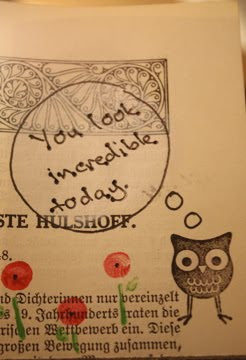 You look
incredible
today.
STE HÜLSHOFF.
48.
nd Dichterinnen nur vereinzelt
s 19. Jahrhunderts traten die
rischen Wettbewerb ein. Diese
großen Bewegung zusammen,